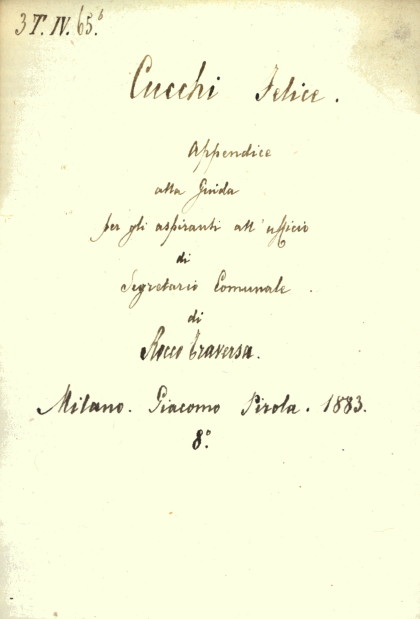 3 T. IV. 65.⁶
Cucchi Felice.
Appendice
alla Guida
per gli aspiranti all'ufficio
di
Segretario Comunale.
di
Rocco Traversa.
Milano. Giacomo Pirola. 1883.
8.º